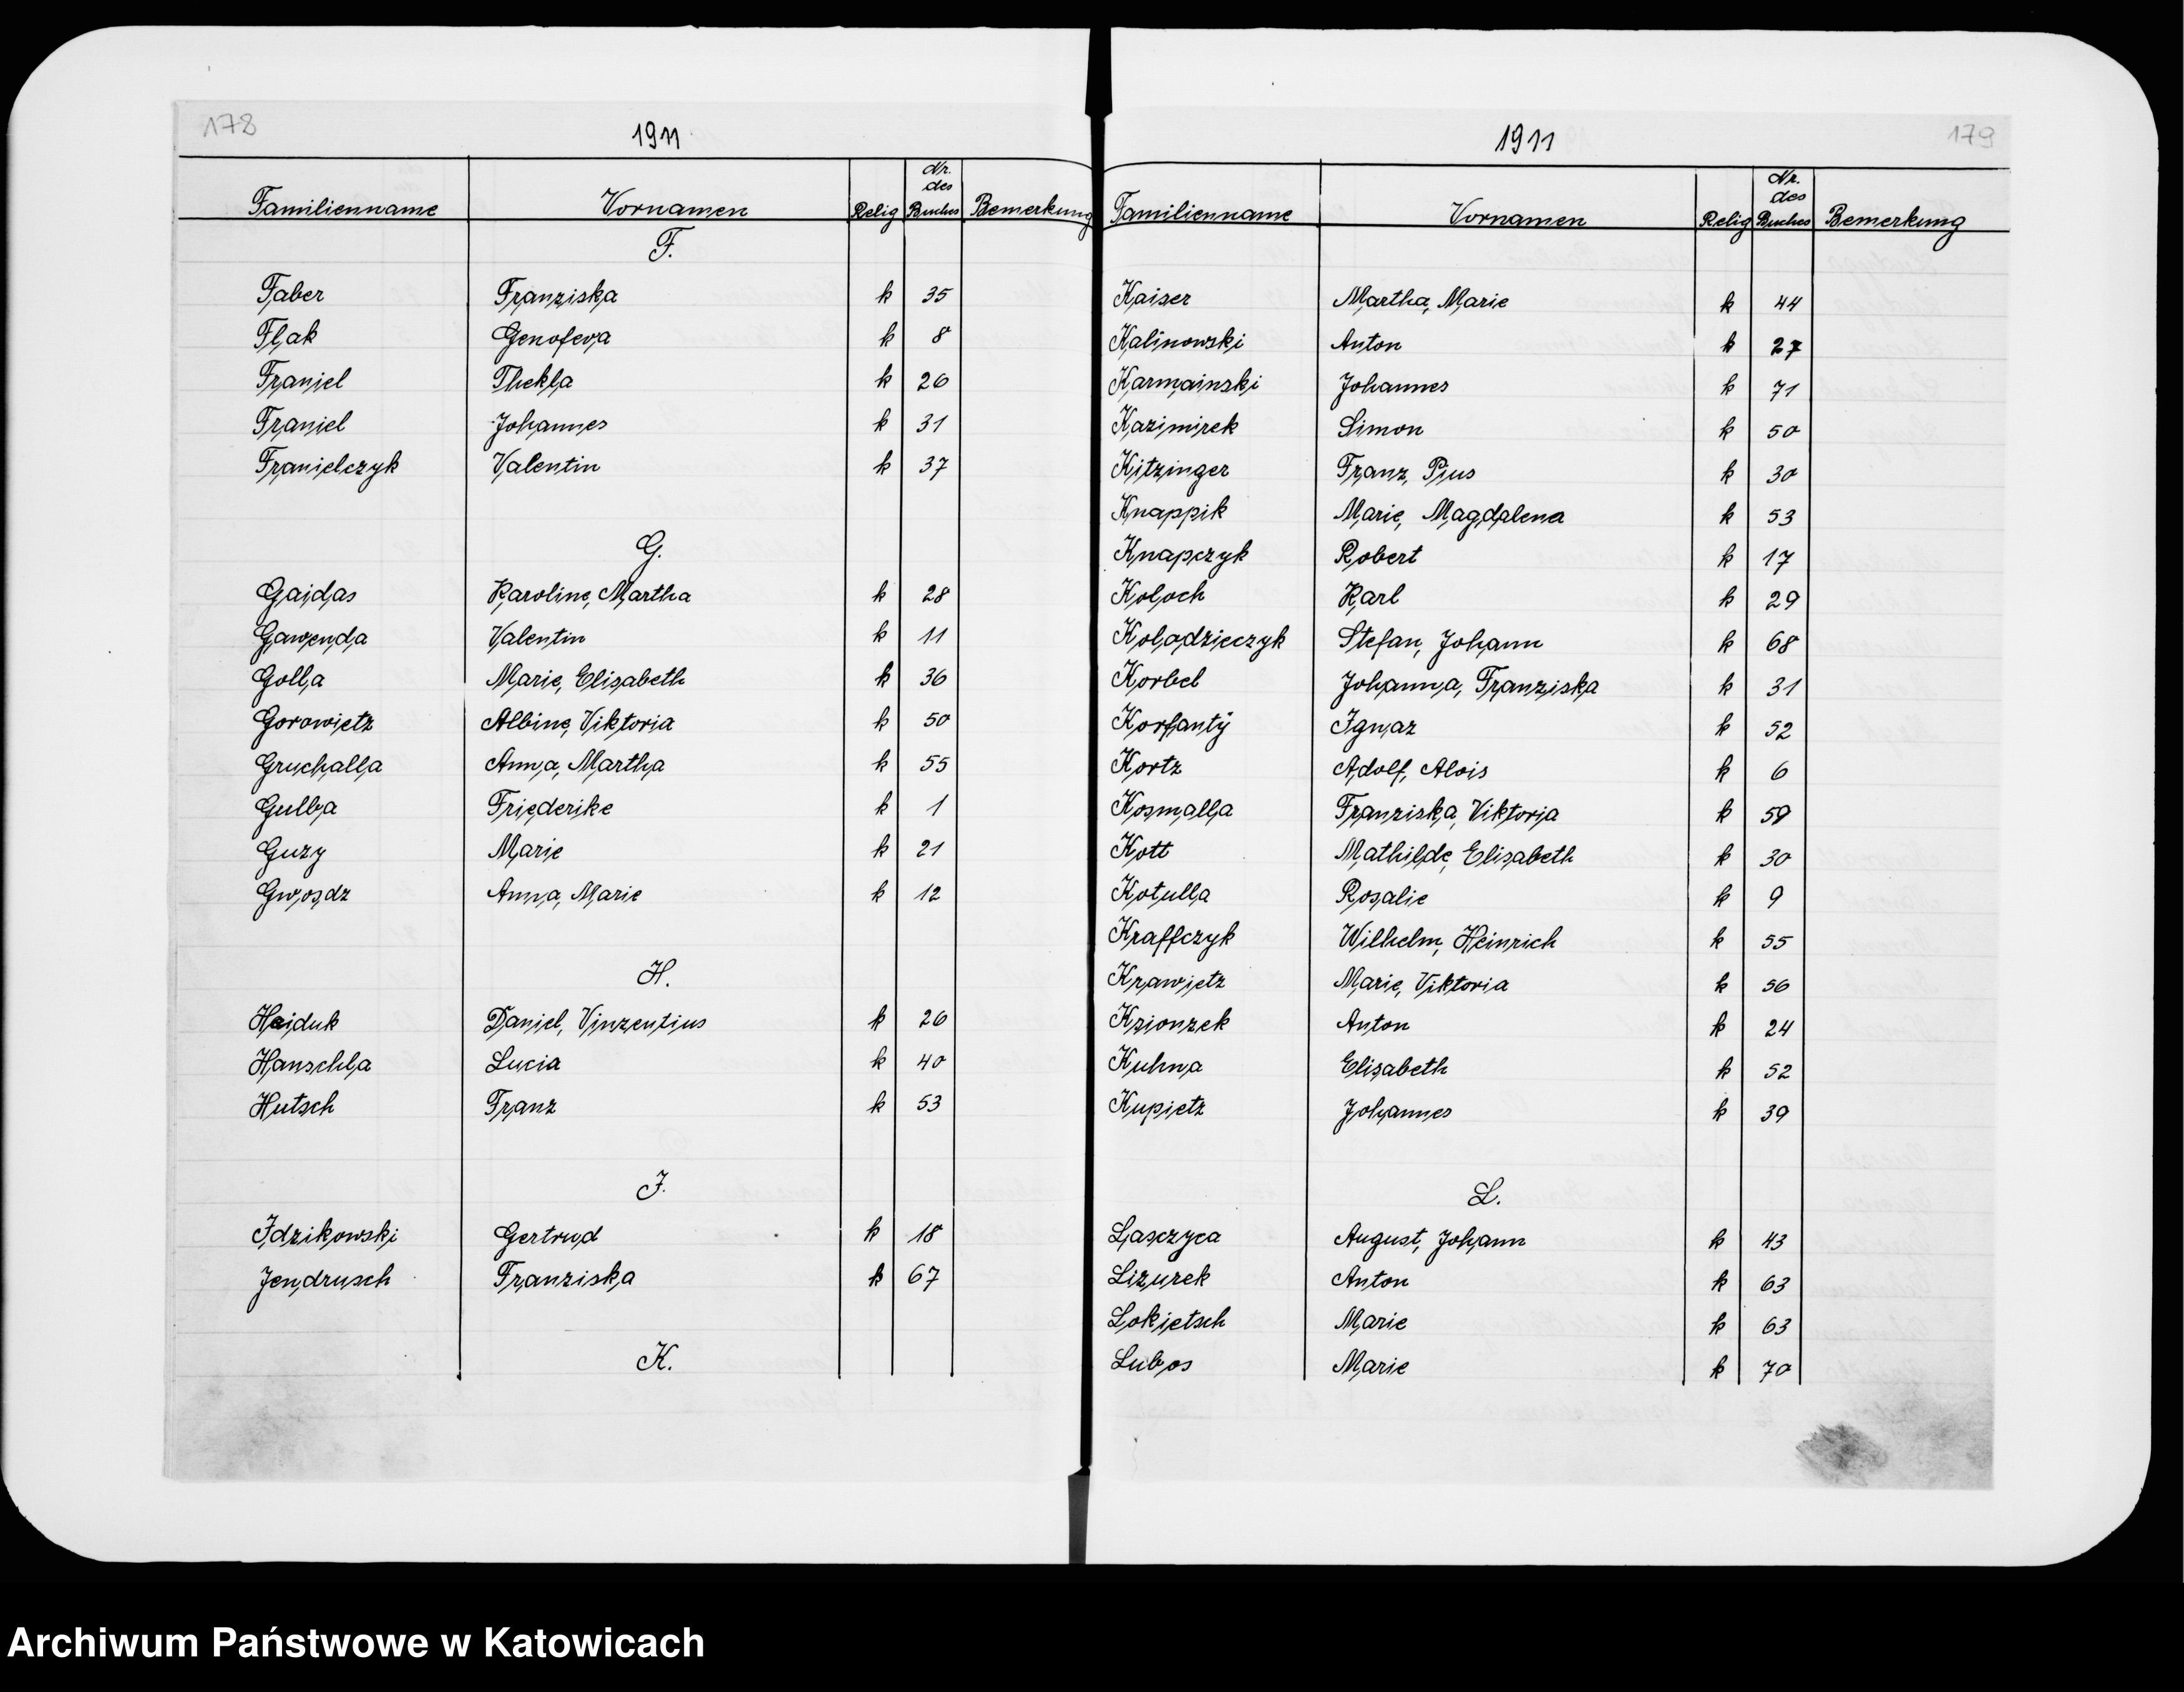 178
1911
Familienname Vornamen Relig Nr. des Buches Bemerkung
F.
Faber Franziska k 35
Flak Genofeva k 8
Franiel Thekla k 26
Franiel Johannes k 31
Franielczyk Valentin k 37
G.
Gaidas Karoline, Martha k 28
Gawenda Valentin k 11
Golla Marie, Elisabeth k 36
Gorowietz Albine, Viktoria k 50
Gruchalla Anna, Martha k 55
Gulba Friederike k 1
Guzy Marie k 21
Gwosdz Anna, Marie k 12
H.
Haiduk Daniel, Vinzentius k 26
Hanschla Lucia k 40
Hutsch Franz k 53
J.
Idzikowski Gertrud k 18
Jendrusch Franziska k 67
K.
179
1911
Familienname Vornamen Relig Nr. des Buches Bemerkung
Kaiser Martha, Marie k 44
Kalinowski Anton k 27
Karmainski Johannes k 71
Kazimirek Simon k 50
Kitzinger Franz, Pius k 30
Knappik Marie, Magdalena k 53
Knapczyk Robert k 17
Koloch Karl k 29
Kolodzieczyk Stefan, Johann k 68
Korbel Johanna, Franziska k 31
Korfantÿ Ignaz k 52
Kortz Adolf, Alois k 6
Kosmalla Franziska, Viktoria k 59
Kott Mathilde, Elisabeth k 30
Kotulla Rosalie k 9
Kraffczyk Wilhelm, Heinrich k 55
Krawietz Marie, Viktoria k 56
Ksionzek Anton k 24
Kuhna Elisabeth k 52
Kupietz Johannes k 39
L.
Lasczyca August, Johann k 43
Lizurek Anton k 63
Lokietsch Marie k 63
Lubos Marie k 70
Archiwum Państwowe w Katowicach